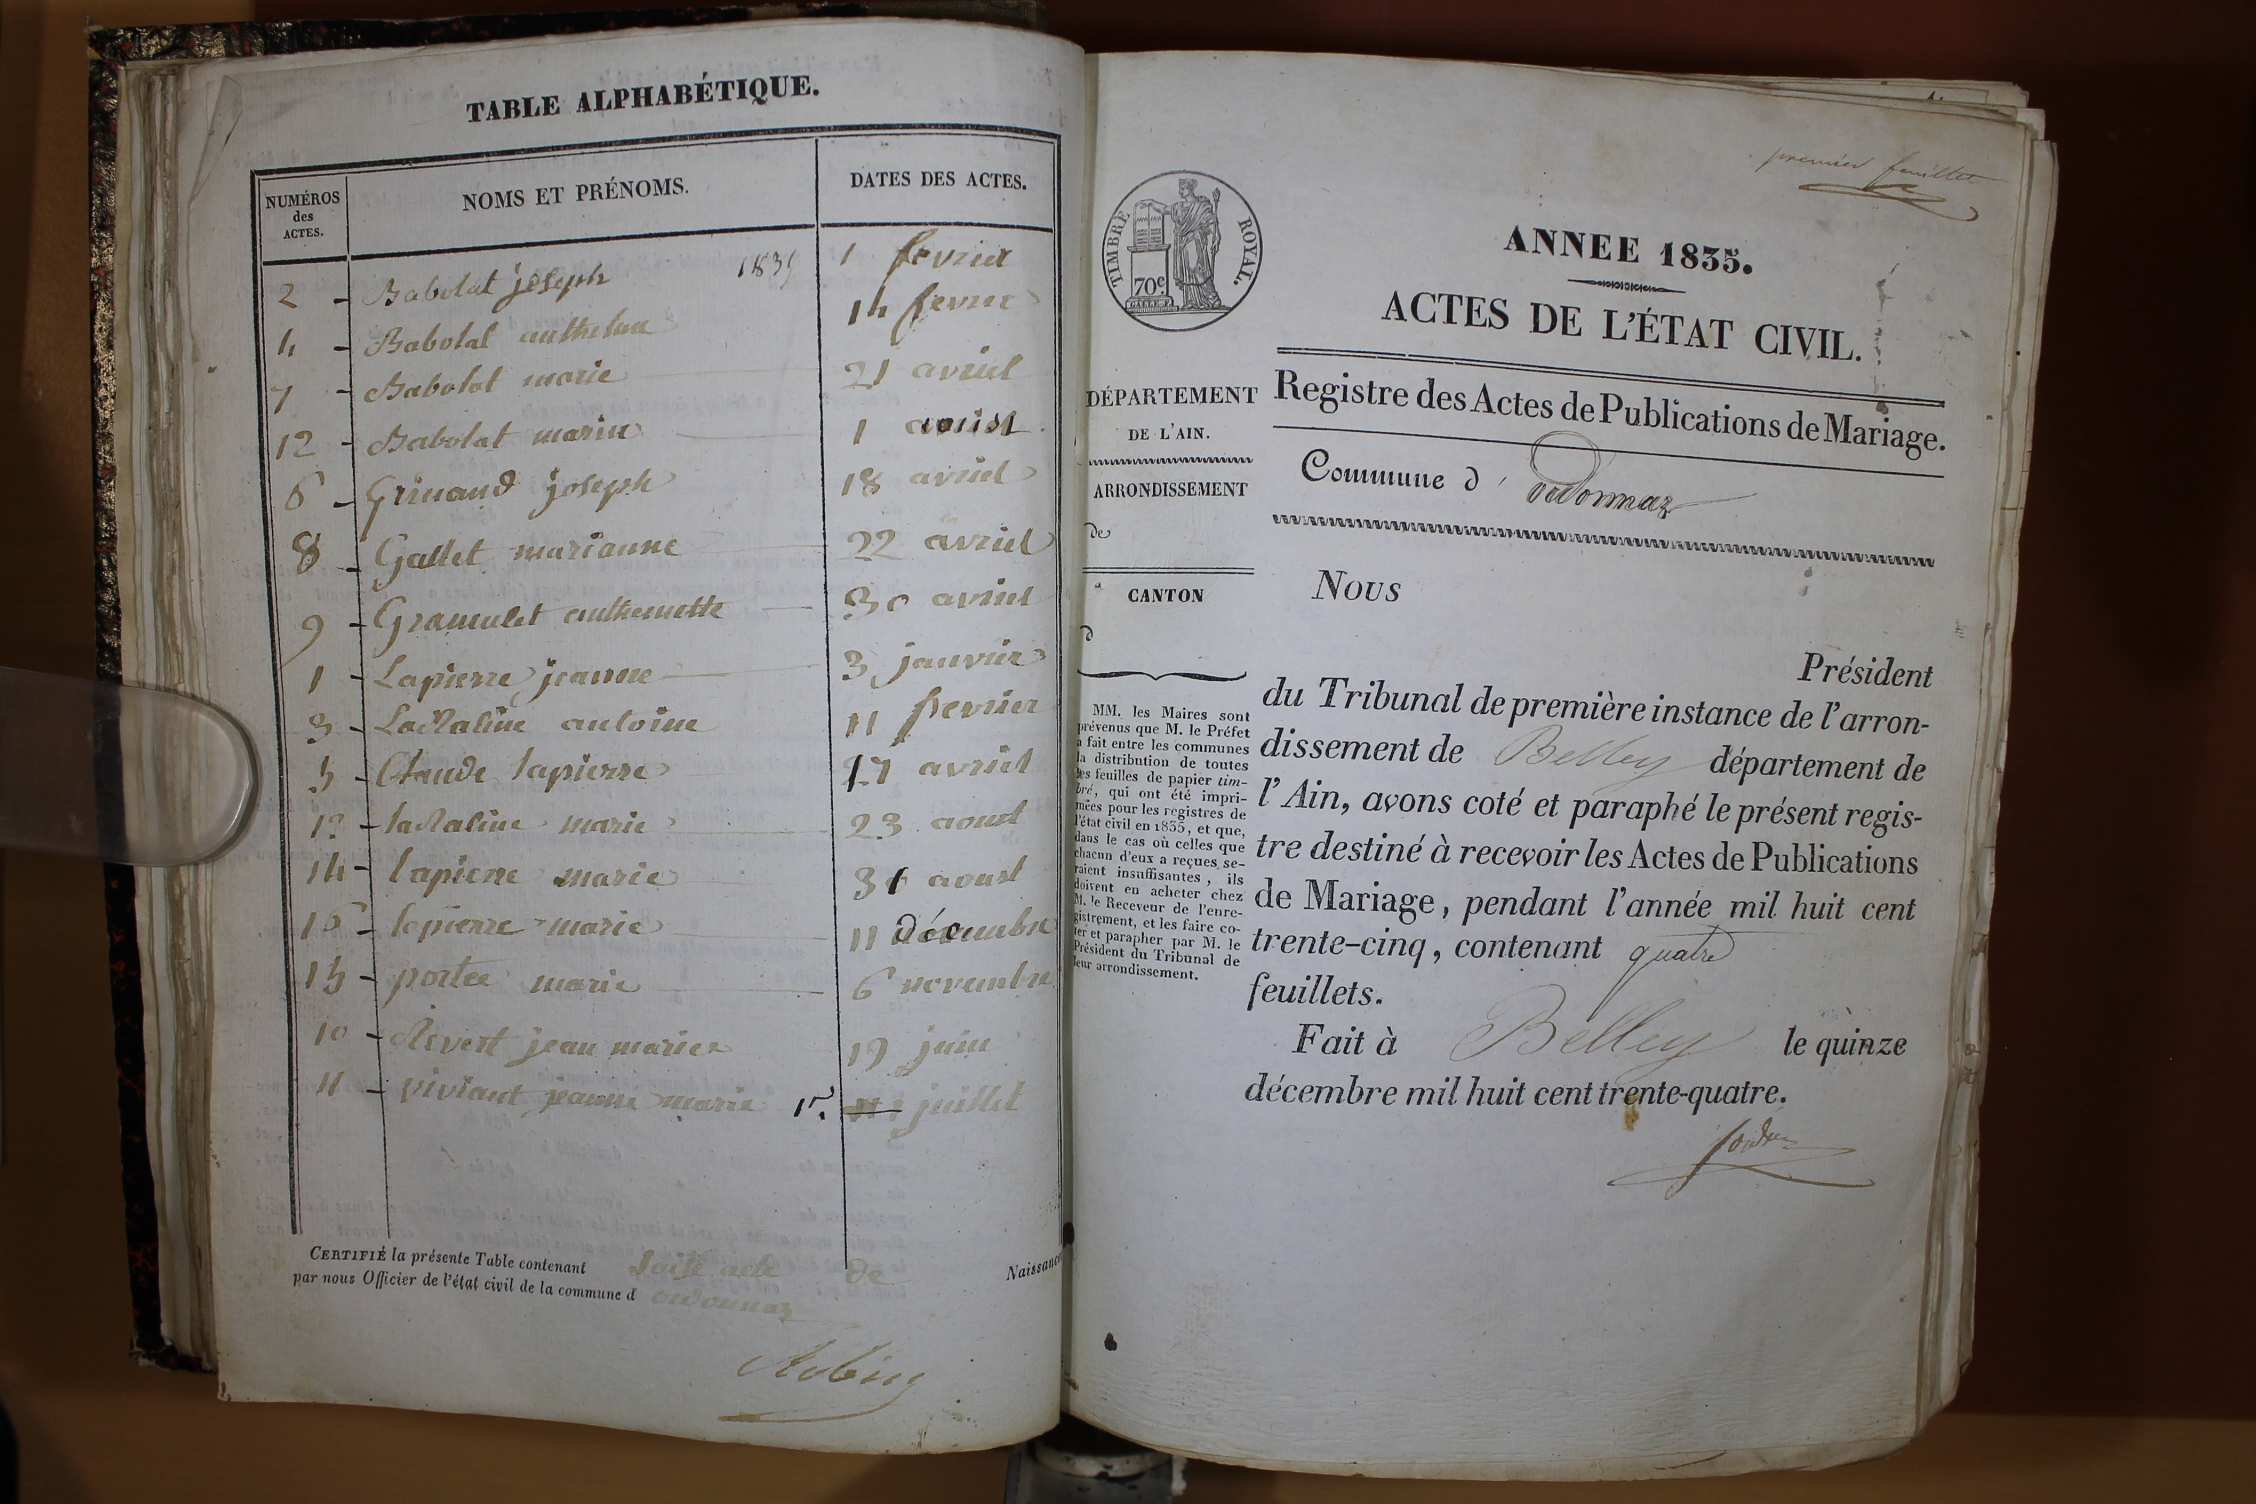 TABLE ALPHABÉTIQUE.
NUMÉROS des ACTES. NOMS ET PRÉNOMS. DATES DES ACTES.
2 - Babolat joseph 1 fevrier
4 - Babolat anthelme 14 fevrier
7 - Babolat marie 21 avriel
12 - Babolat marie 1 aoust
6 - Grinand joseph 18 avriel
8 - Gallet marianne 22 avriel
9 - Gramulet anthemette 30 avriel
1 - Lapierre jeanne 3 janvier
3 - antoine 11 fevrier
5 - Claude lapierre 17 avriel
13 - marie 23 aoust
14 - lapierre marie 31 aoust
16 - lapierre marie 11 décembre
15 - portee marie 6 novembre
10 - Revert jean marie 19 juin
11 - viviant jeanne marie 1r. juillet
CERTIFIÉ la présente Table contenant acte de Naissance
par nous Officier de l'état civil de la commune d ordonnaz
premier feuillet
TIMBRE ROYAL.
70c.
ANNEE 1835.
ACTES DE L'ÉTAT CIVIL.
Registre des Actes de Publications de Mariage.
Commune d' ordonnaz
DÉPARTEMENT
DE L'AIN.
ARRONDISSEMENT
de
CANTON
d
MM. les Maires sont
prévenus que M. le Préfet
a fait entre les communes
la distribution de toutes
les feuilles de papier tim-
bré, qui ont été impri-
mées pour les registres de
l'état civil en 1835, et que,
dans le cas où celles que
chacun d'eux a reçues se-
raient insuffisantes, ils
doivent en acheter chez
M. le Receveur de l'enre-
gistrement, et les faire co-
ter et parapher par M. le
Président du Tribunal de
leur arrondissement.
Nous
Président
du Tribunal de première instance de l'arron-
dissement de Belley département de
l'Ain, avons coté et paraphé le présent regis-
tre destiné à recevoir les Actes de Publications
de Mariage, pendant l'année mil huit cent
trente-cinq, contenant quatre
feuillets.
Fait à Belley le quinze
décembre mil huit cent trente-quatre.